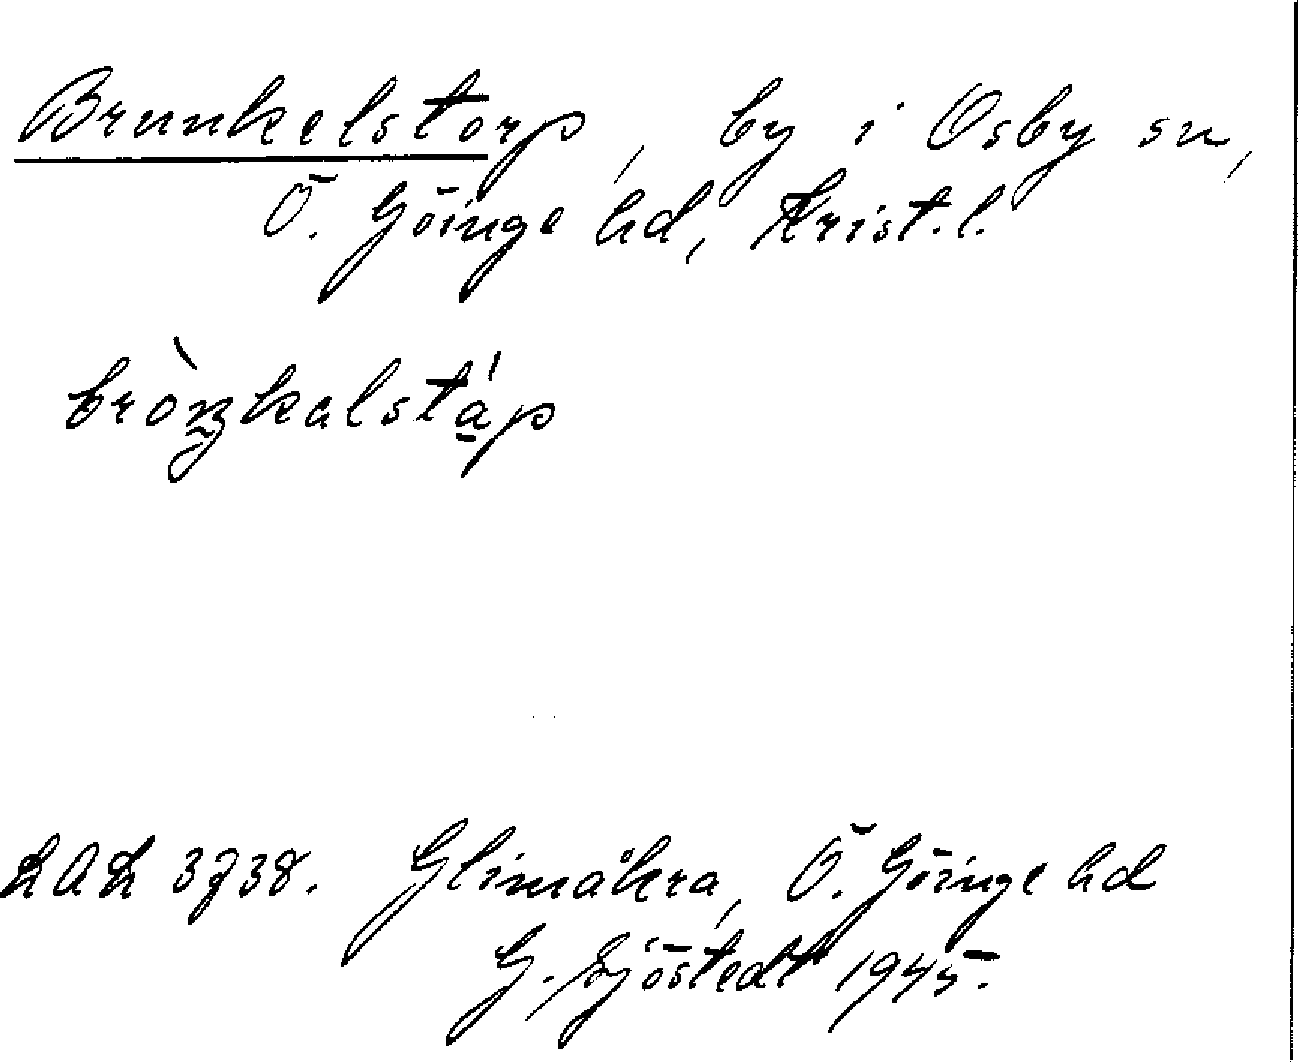 Brunkelstorp, by i Osby sn,
Ö. Göinge hd, Krist.l.
bròŋkalstáp
LAL 3738. Glimåkra, Ö. Göinge hd
G. Sjöstedt 1945.